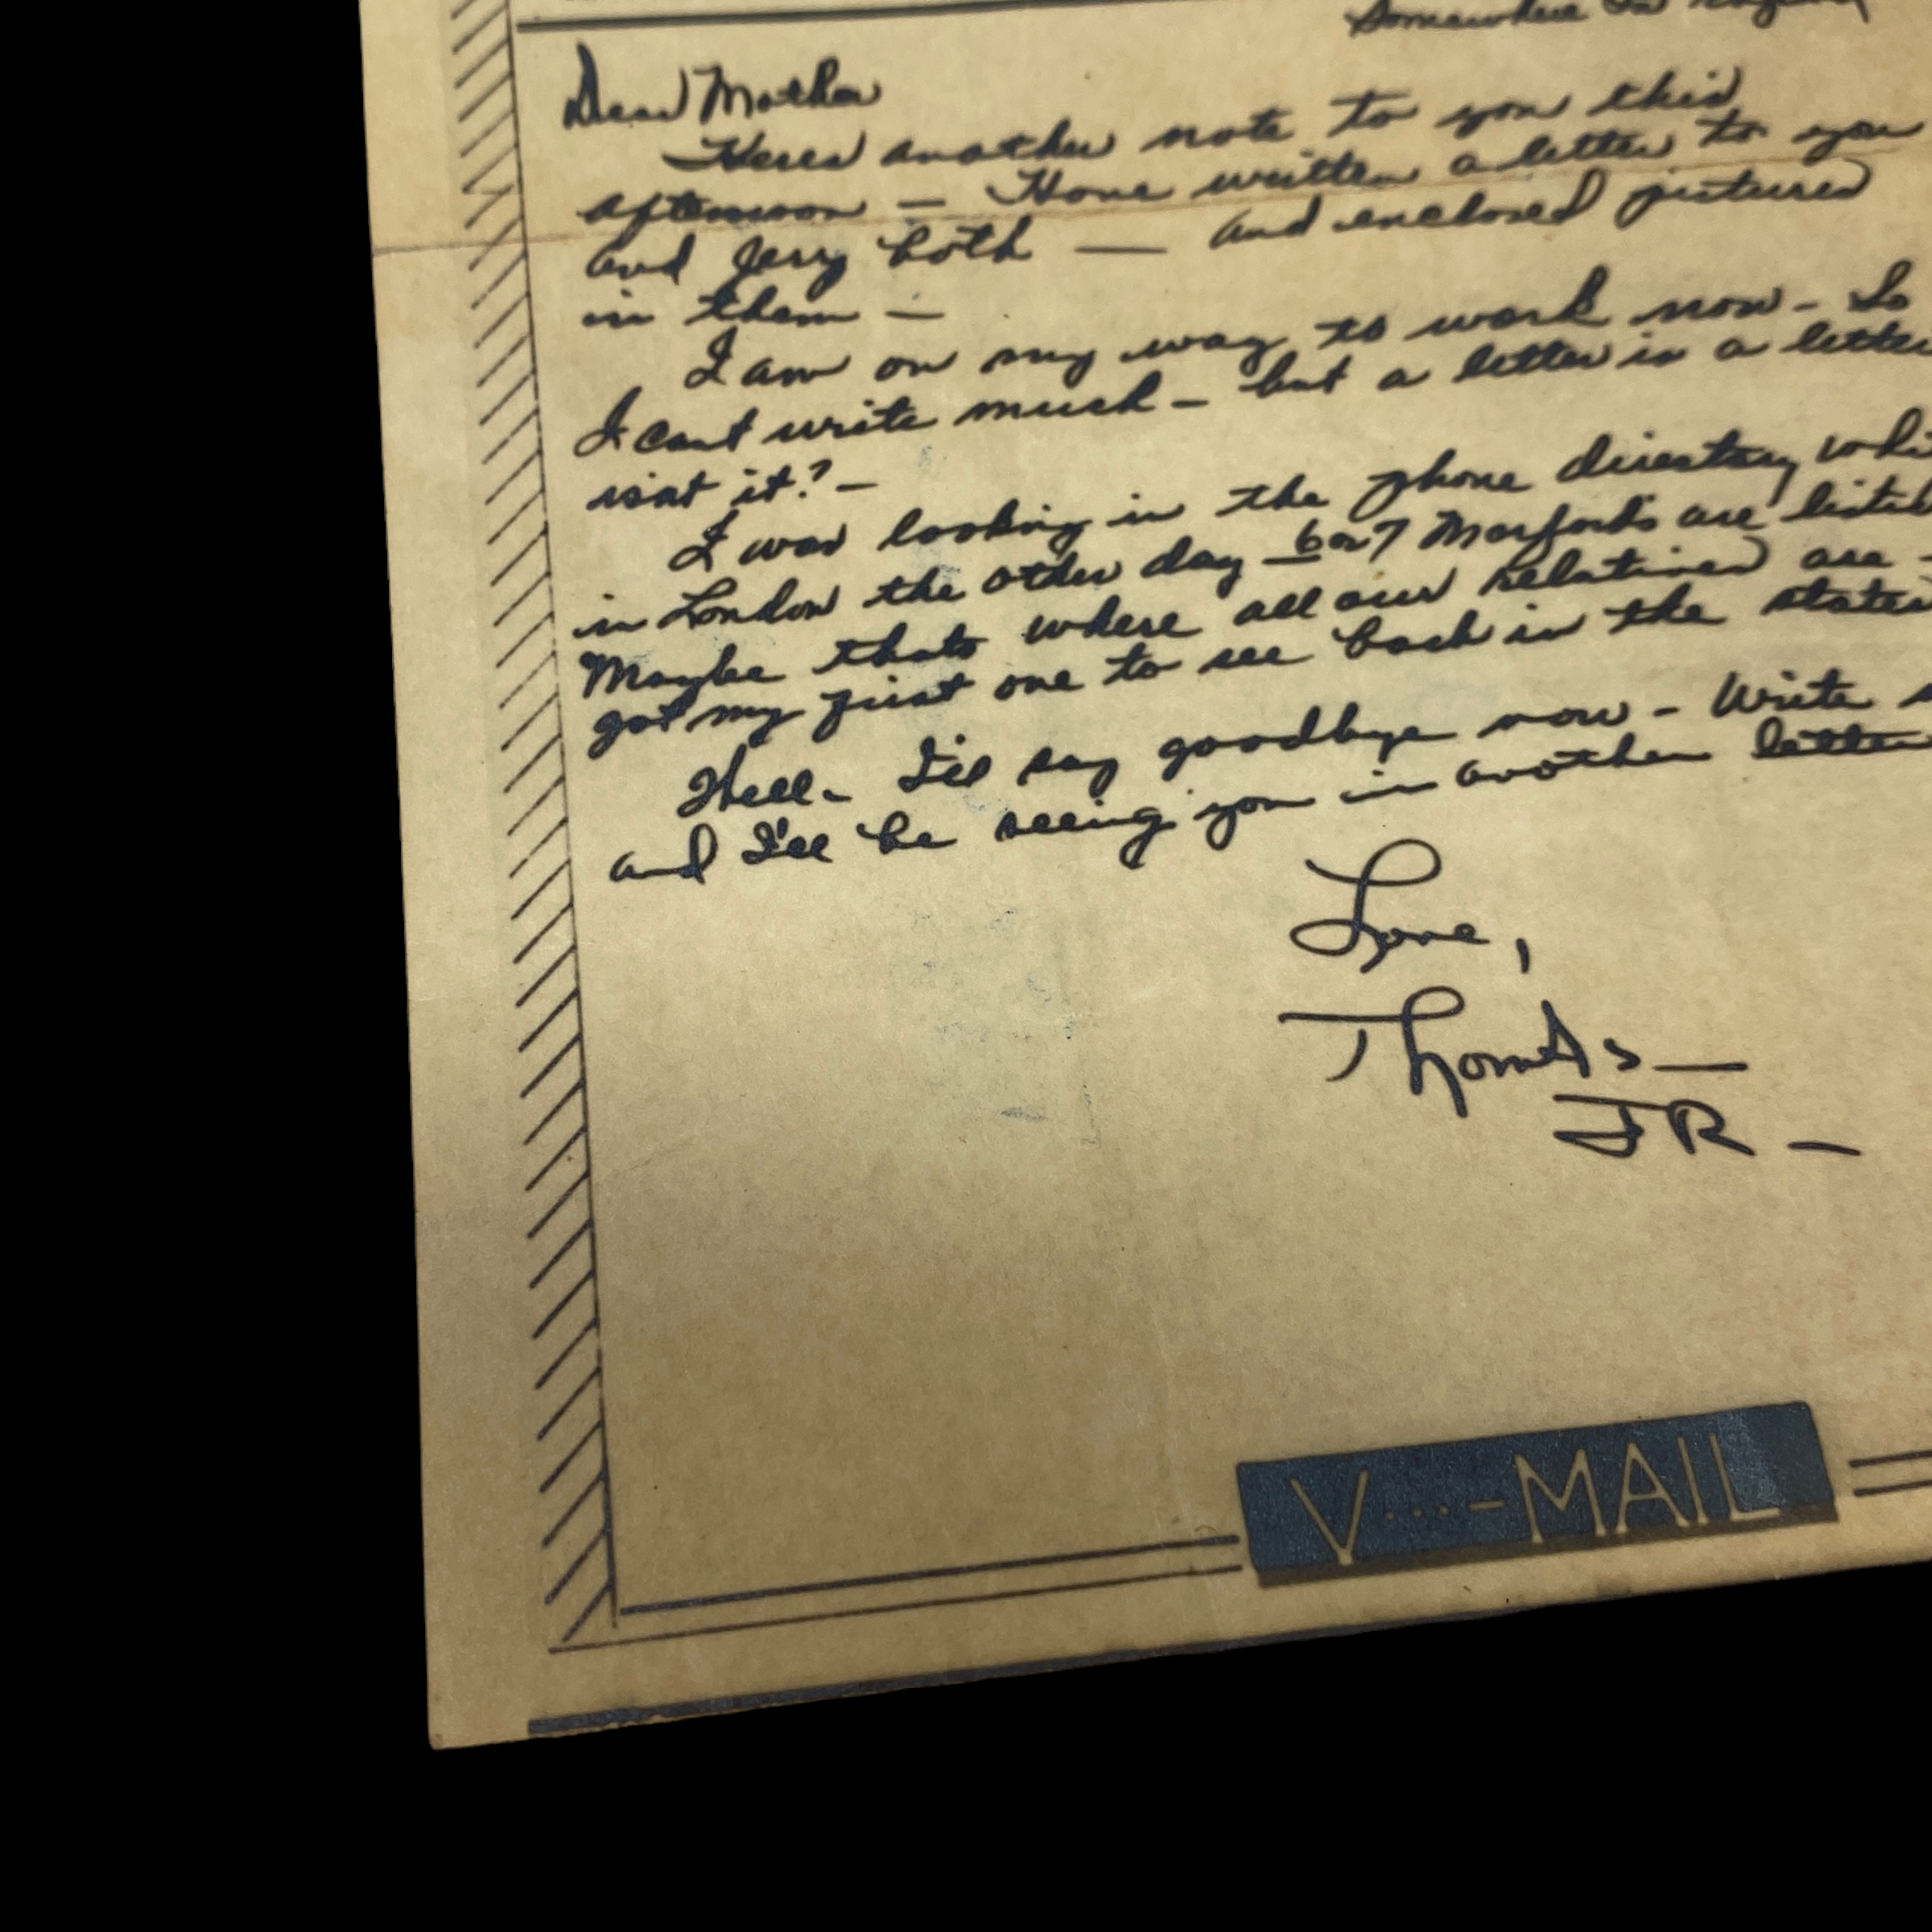 Somewhere in England
Dear Mother
Heres another note to you this
afternoon — Have written a letter to you
and Jerry both — and enclosed pictures
in them —
I am on my way to work now - So
I cant write much - but a letter is a letter
isnt it? —
I was looking in the phone directory
in London the other day 6 or 7 are listed
Maybe thats where all our relatives are -
got my first one to see back in the states
Well - I'll say goodbye now - Write
and I'll be seeing you in another letter
Love,
Thomas —
JR —
V...-MAIL